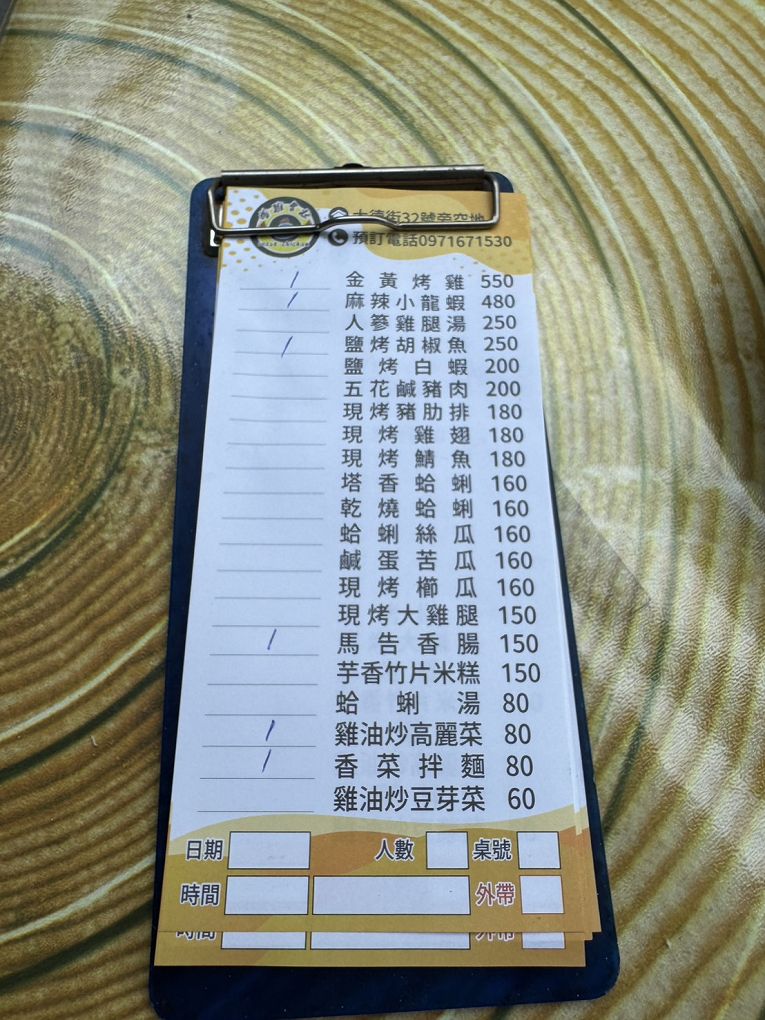 大德街32號旁空地
預訂電話0971671530
/ 金黃烤雞 550
/ 麻辣小龍蝦 480
人蔘雞腿湯 250
/ 鹽烤胡椒魚 250
鹽烤白蝦 200
五花鹹豬肉 200
現烤豬肋排 180
現烤雞翅 180
現烤鯖魚 180
塔香蛤蜊 160
乾燒蛤蜊 160
蛤蜊絲瓜 160
鹹蛋苦瓜 160
現烤櫛瓜 160
現烤大雞腿 150
/ 馬告香腸 150
芋香竹片米糕 150
蛤蜊湯 80
/ 雞油炒高麗菜 80
/ 香菜拌麵 80
雞油炒豆芽菜 60
日期 人數 桌號
時間 外帶
時間 外帶